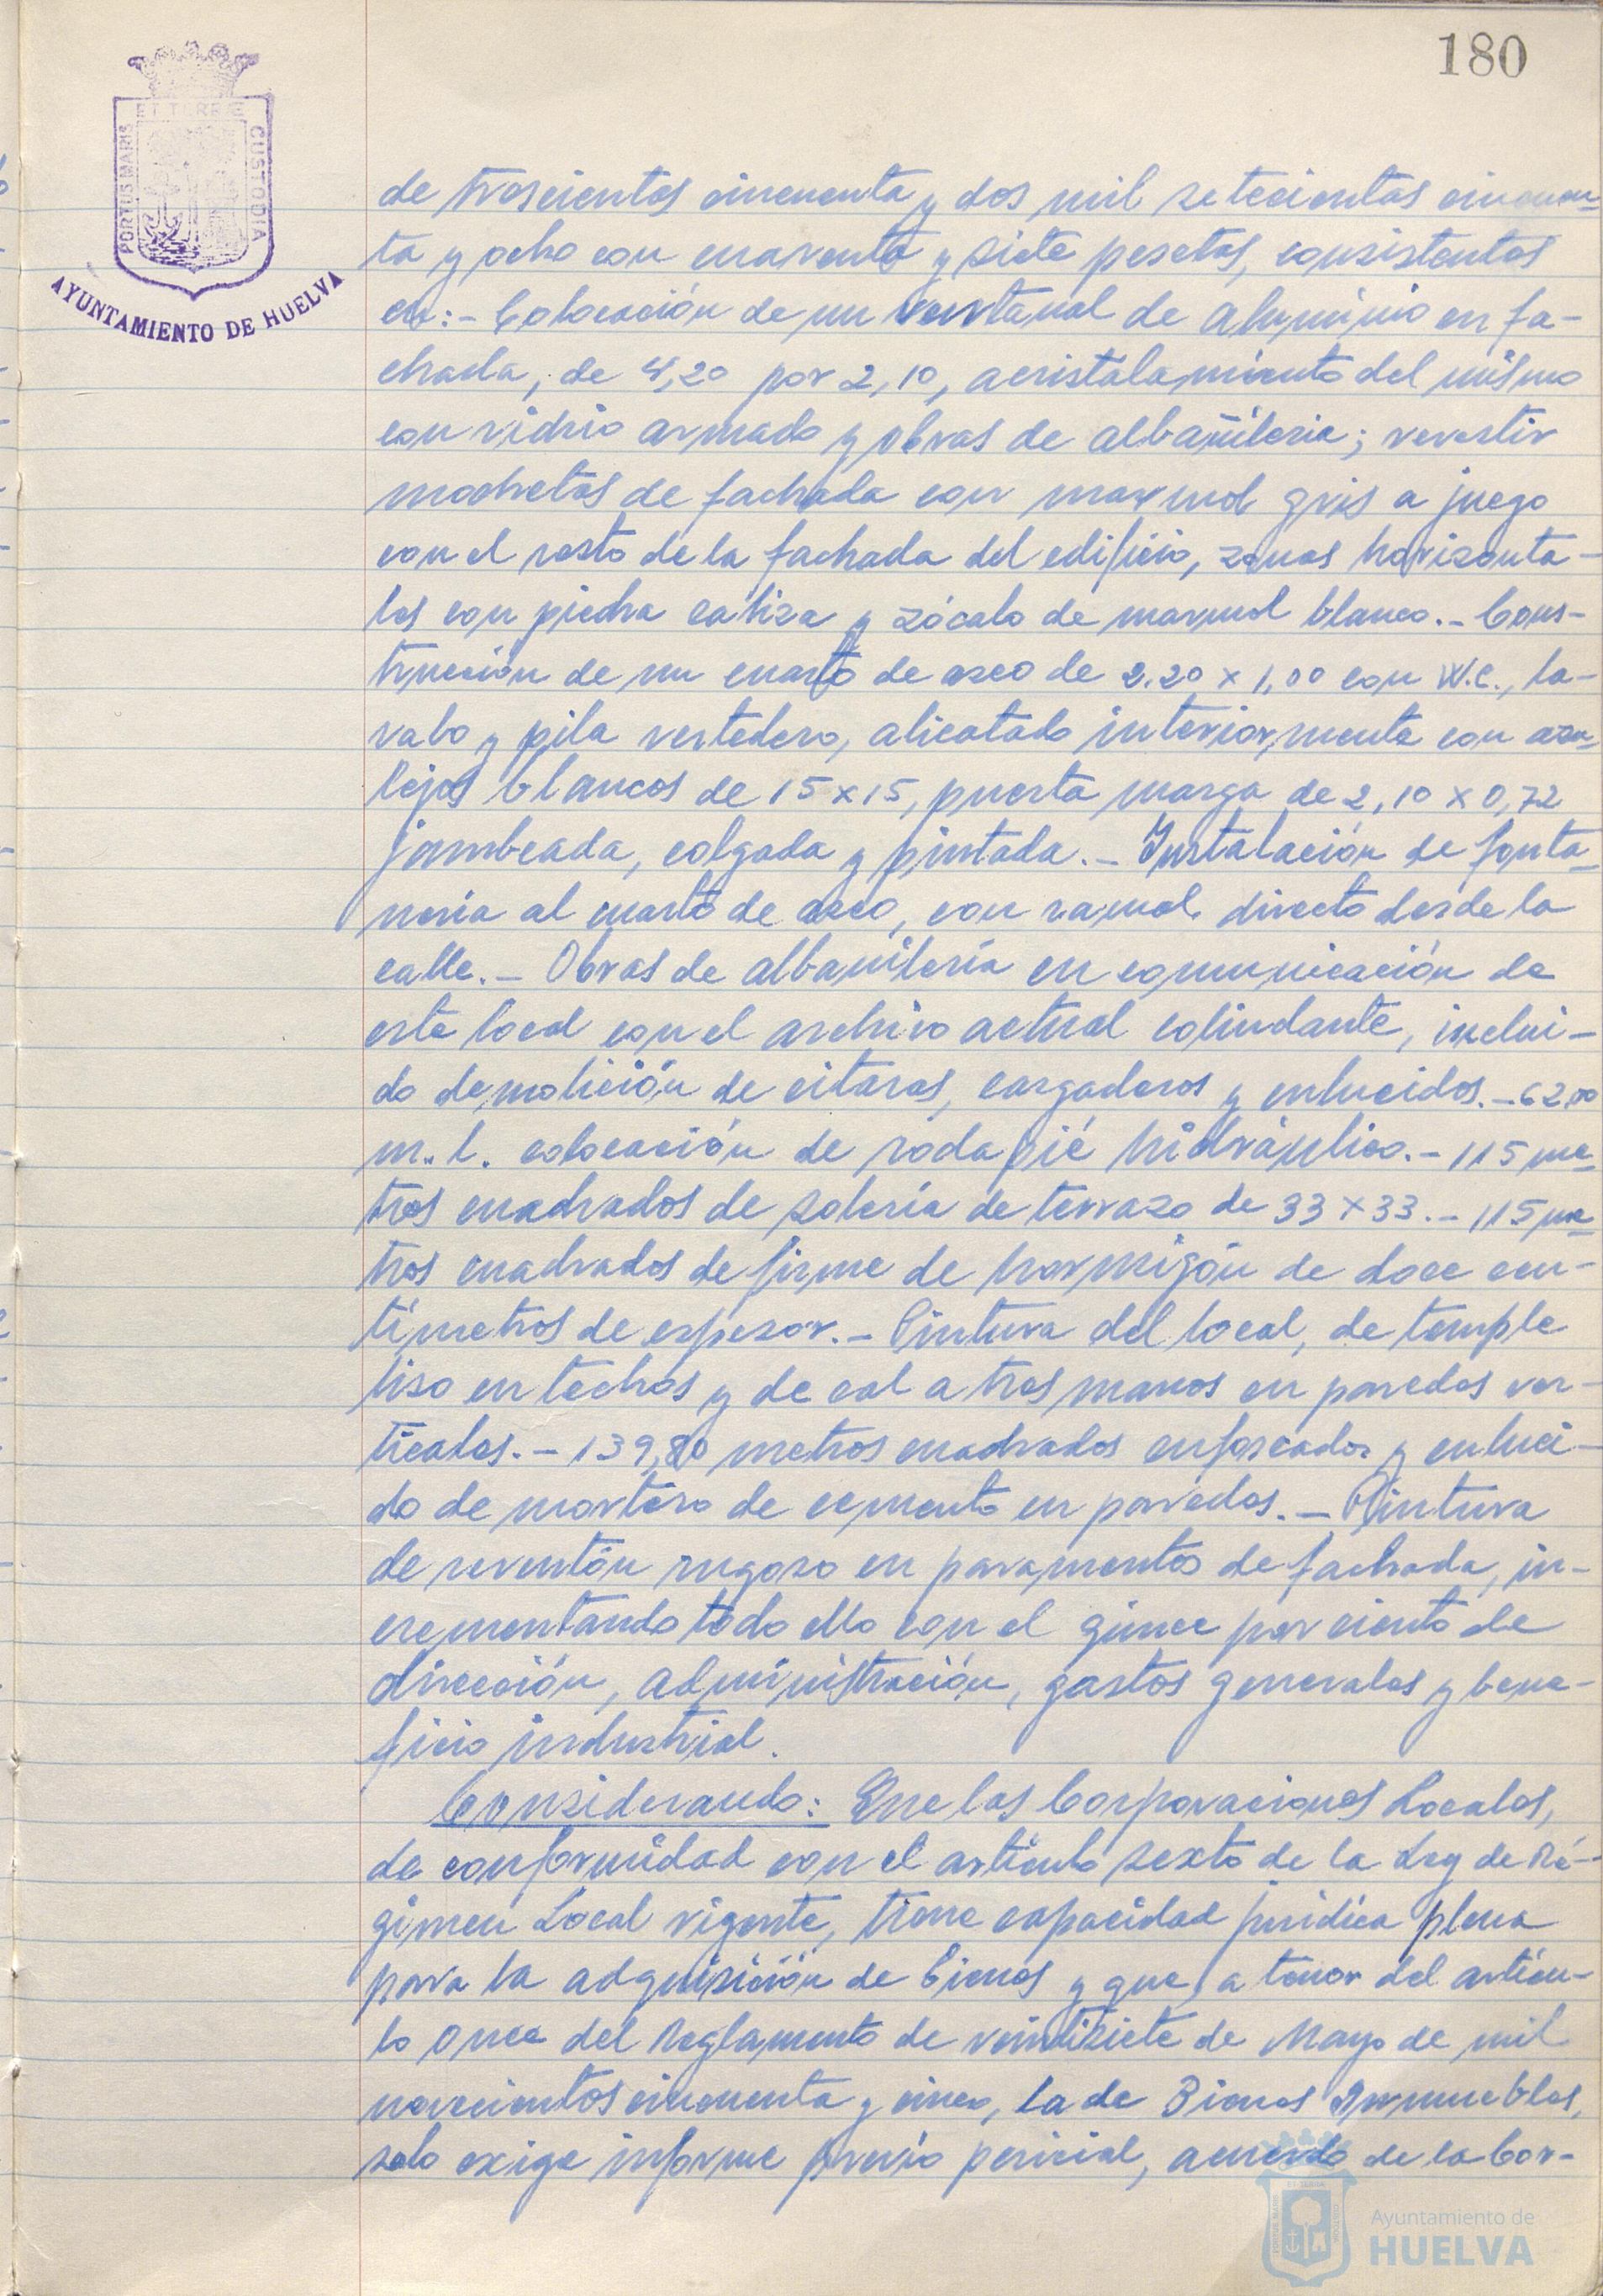 180
ET TERRÆ
PORTUS MARIS
CUSTODIA
AYUNTAMIENTO DE HUELVA
de trescientas cincuenta y dos mil setecientas cincuen-
ta y ocho con cuarenta y siete pesetas, consistentes
en:- Colocación de un ventanal de aluminio en fa-
chada, de 4,20 por 2,10, acristalamiento del mismo
con vidrio armado y obras de albañileria; revestir
mochetas de fachada con marmol gris a juego
con el resto de la fachada del edificio, zonas horizonta-
les con piedra caliza y zócalo de marmol blanco.- Cons-
trucción de un cuarto de aseo de 2.20 x 1,00 con W.C., la-
vabo y pila vertedero, alicatado interiormente con azu-
lejos blancos de 15 x 15, puerta marga de 2,10 x 0,72
jambeada, colgada y pintada.- Instalación de fonta-
nería al cuarto de aseo, con ramal directo desde la
calle.- Obras de albanilería en comunicación de
este local con el archivo actual colindante, inclui-
do demolición de citaras, cargaderos y enlucidos.- 62,00
m. l. colocación de rodapié hidráulico.- 115 me-
tros cuadrados de solería de terrazo de 33 x 33.- 115 me-
tros cuadrados de firme de hormigón de doce cen-
tímetros de espesor.- Pintura del local, de temple
liso en techos y de cal a tres manos en paredes ver-
ticales.- 139,80 metros cuadrados enfoscados y enluci-
do de mortero de cemento en paredes.- Pintura
de reventón rugoso en paramentos de fachada, in-
crementando todo ello con el quince por ciento de
dirección, administración, gastos generales y bene-
ficio industrial.
Considerando: Que las Corporaciones Locales,
de conformidad con el artículo sexto de la Ley de Ré-
gimen Local vigente, tiene capacidad jurídica plena
para la adquisición de bienes y que, a tenor del artícu-
lo once del Reglamento de veintisiete de Mayo de mil
novecientos cincuenta y cinco, la de Bienes Inmuebles,
solo exige informe previo pericial, acuerdo de la Cor-
Ayuntamiento de
HUELVA